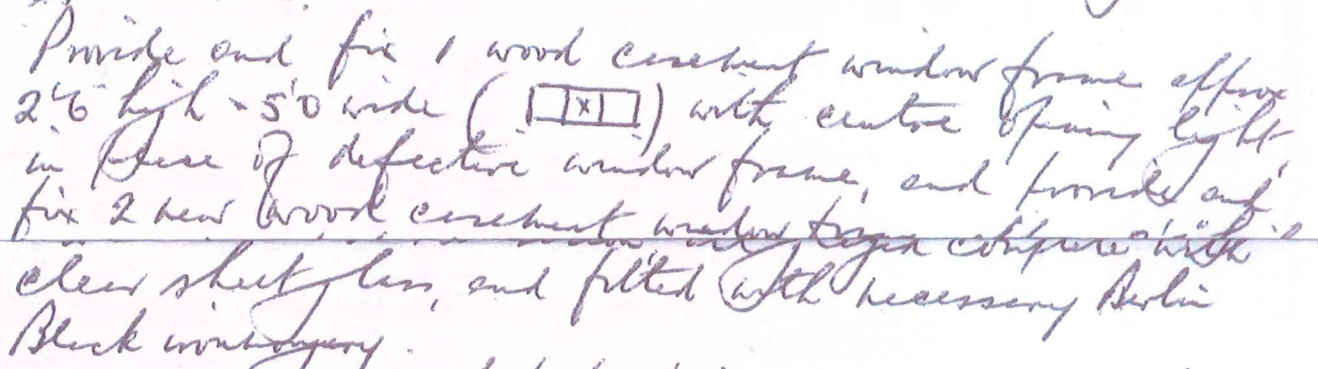 Provide and fix 1 wood casement window frame approx
2'6 high - 5'0 wide ( x ) with centre opening light,
in place of defective window frame, and provide and
fix 2 new wood casement window complete with
clear sheet glass, and fitted with necessary Berlin
Black ironmongery.